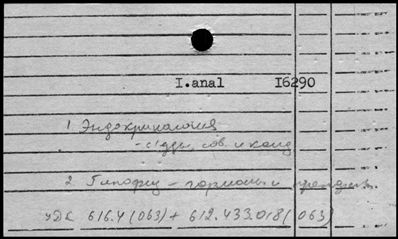 I.anal I6290
1. Эндокринология
- съезды, сов. и конф
2. Гипофиз - гормоны и препараты.
УДК 616.4(063)+ 612.433.018(063)